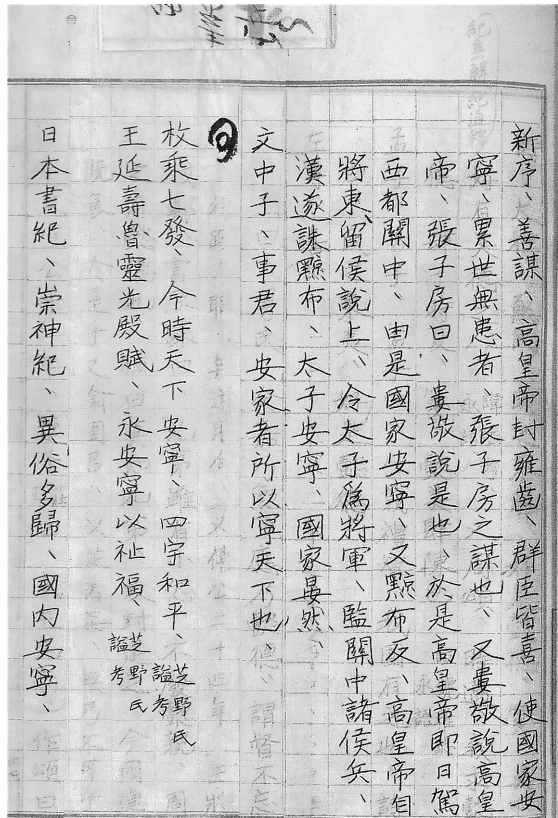 新序、善謀、高皇帝封雍齒、群臣皆喜、使國家安
寧、累世無患者、張子房之謀也、又婁敬說高皇
帝、張子房曰、婁敬說是也、於是高皇帝即日駕
西都關中、由是國家安寧、又黥布反、高皇帝自
將東、留侯說上、令太子爲將軍、監關中諸侯兵、
漢遂誅黥布、太子安寧、國家晏然、
文中子、事君、安家者所以寧天下也、
枚乘七發、今時天下安寧、四宇和平、芝野氏謚考
王延壽魯靈光殿賦、永安寧以祉福、芝野氏謚考
日本書紀、崇神紀、異俗多歸、國內安寧、